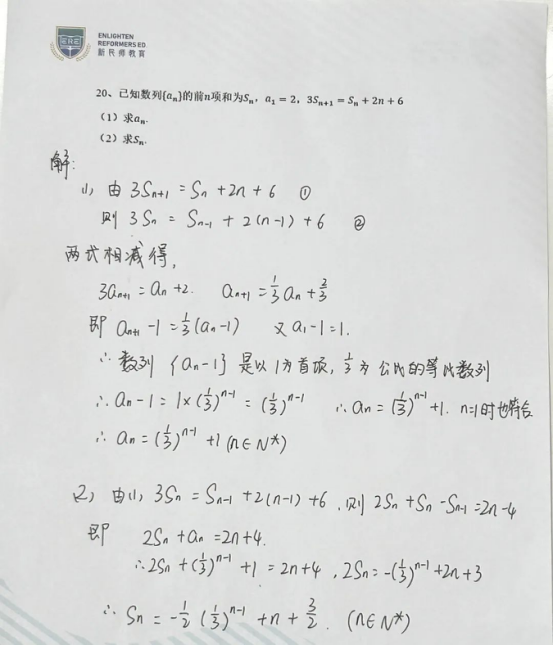 ENLIGHTEN
REFORMERS ED.
新民师教育
20、已知数列{aₙ}的前n项和为Sₙ，a₁ = 2，3Sₙ₊₁ = Sₙ + 2n + 6
（1）求aₙ.
（2）求Sₙ.
解：
(1) 由 3Sₙ₊₁ = Sₙ + 2n + 6 ①
则 3Sₙ = Sₙ₋₁ + 2(n-1) + 6 ②
两式相减得,
3aₙ₊₁ = aₙ + 2. aₙ₊₁ = 1/3 aₙ + 2/3
即 aₙ₊₁ - 1 = 1/3 (aₙ - 1) 又 a₁ - 1 = 1.
∴ 数列 {aₙ - 1} 是以 1 为首项, 1/3 为公比的等比数列
∴ aₙ - 1 = 1×(1/3)ⁿ⁻¹ = (1/3)ⁿ⁻¹ ∴ aₙ = (1/3)ⁿ⁻¹ + 1. n=1时也符合
∴ aₙ = (1/3)ⁿ⁻¹ + 1 (n∈N*)
(2) 由(1), 3Sₙ = Sₙ₋₁ + 2(n-1) + 6, 则 2Sₙ + Sₙ - Sₙ₋₁ = 2n-4
即 2Sₙ + aₙ = 2n+4.
∴ 2Sₙ + (1/3)ⁿ⁻¹ + 1 = 2n+4, 2Sₙ = -(1/3)ⁿ⁻¹ + 2n + 3
∴ Sₙ = -1/2 (1/3)ⁿ⁻¹ + n + 3/2. (n∈N*)